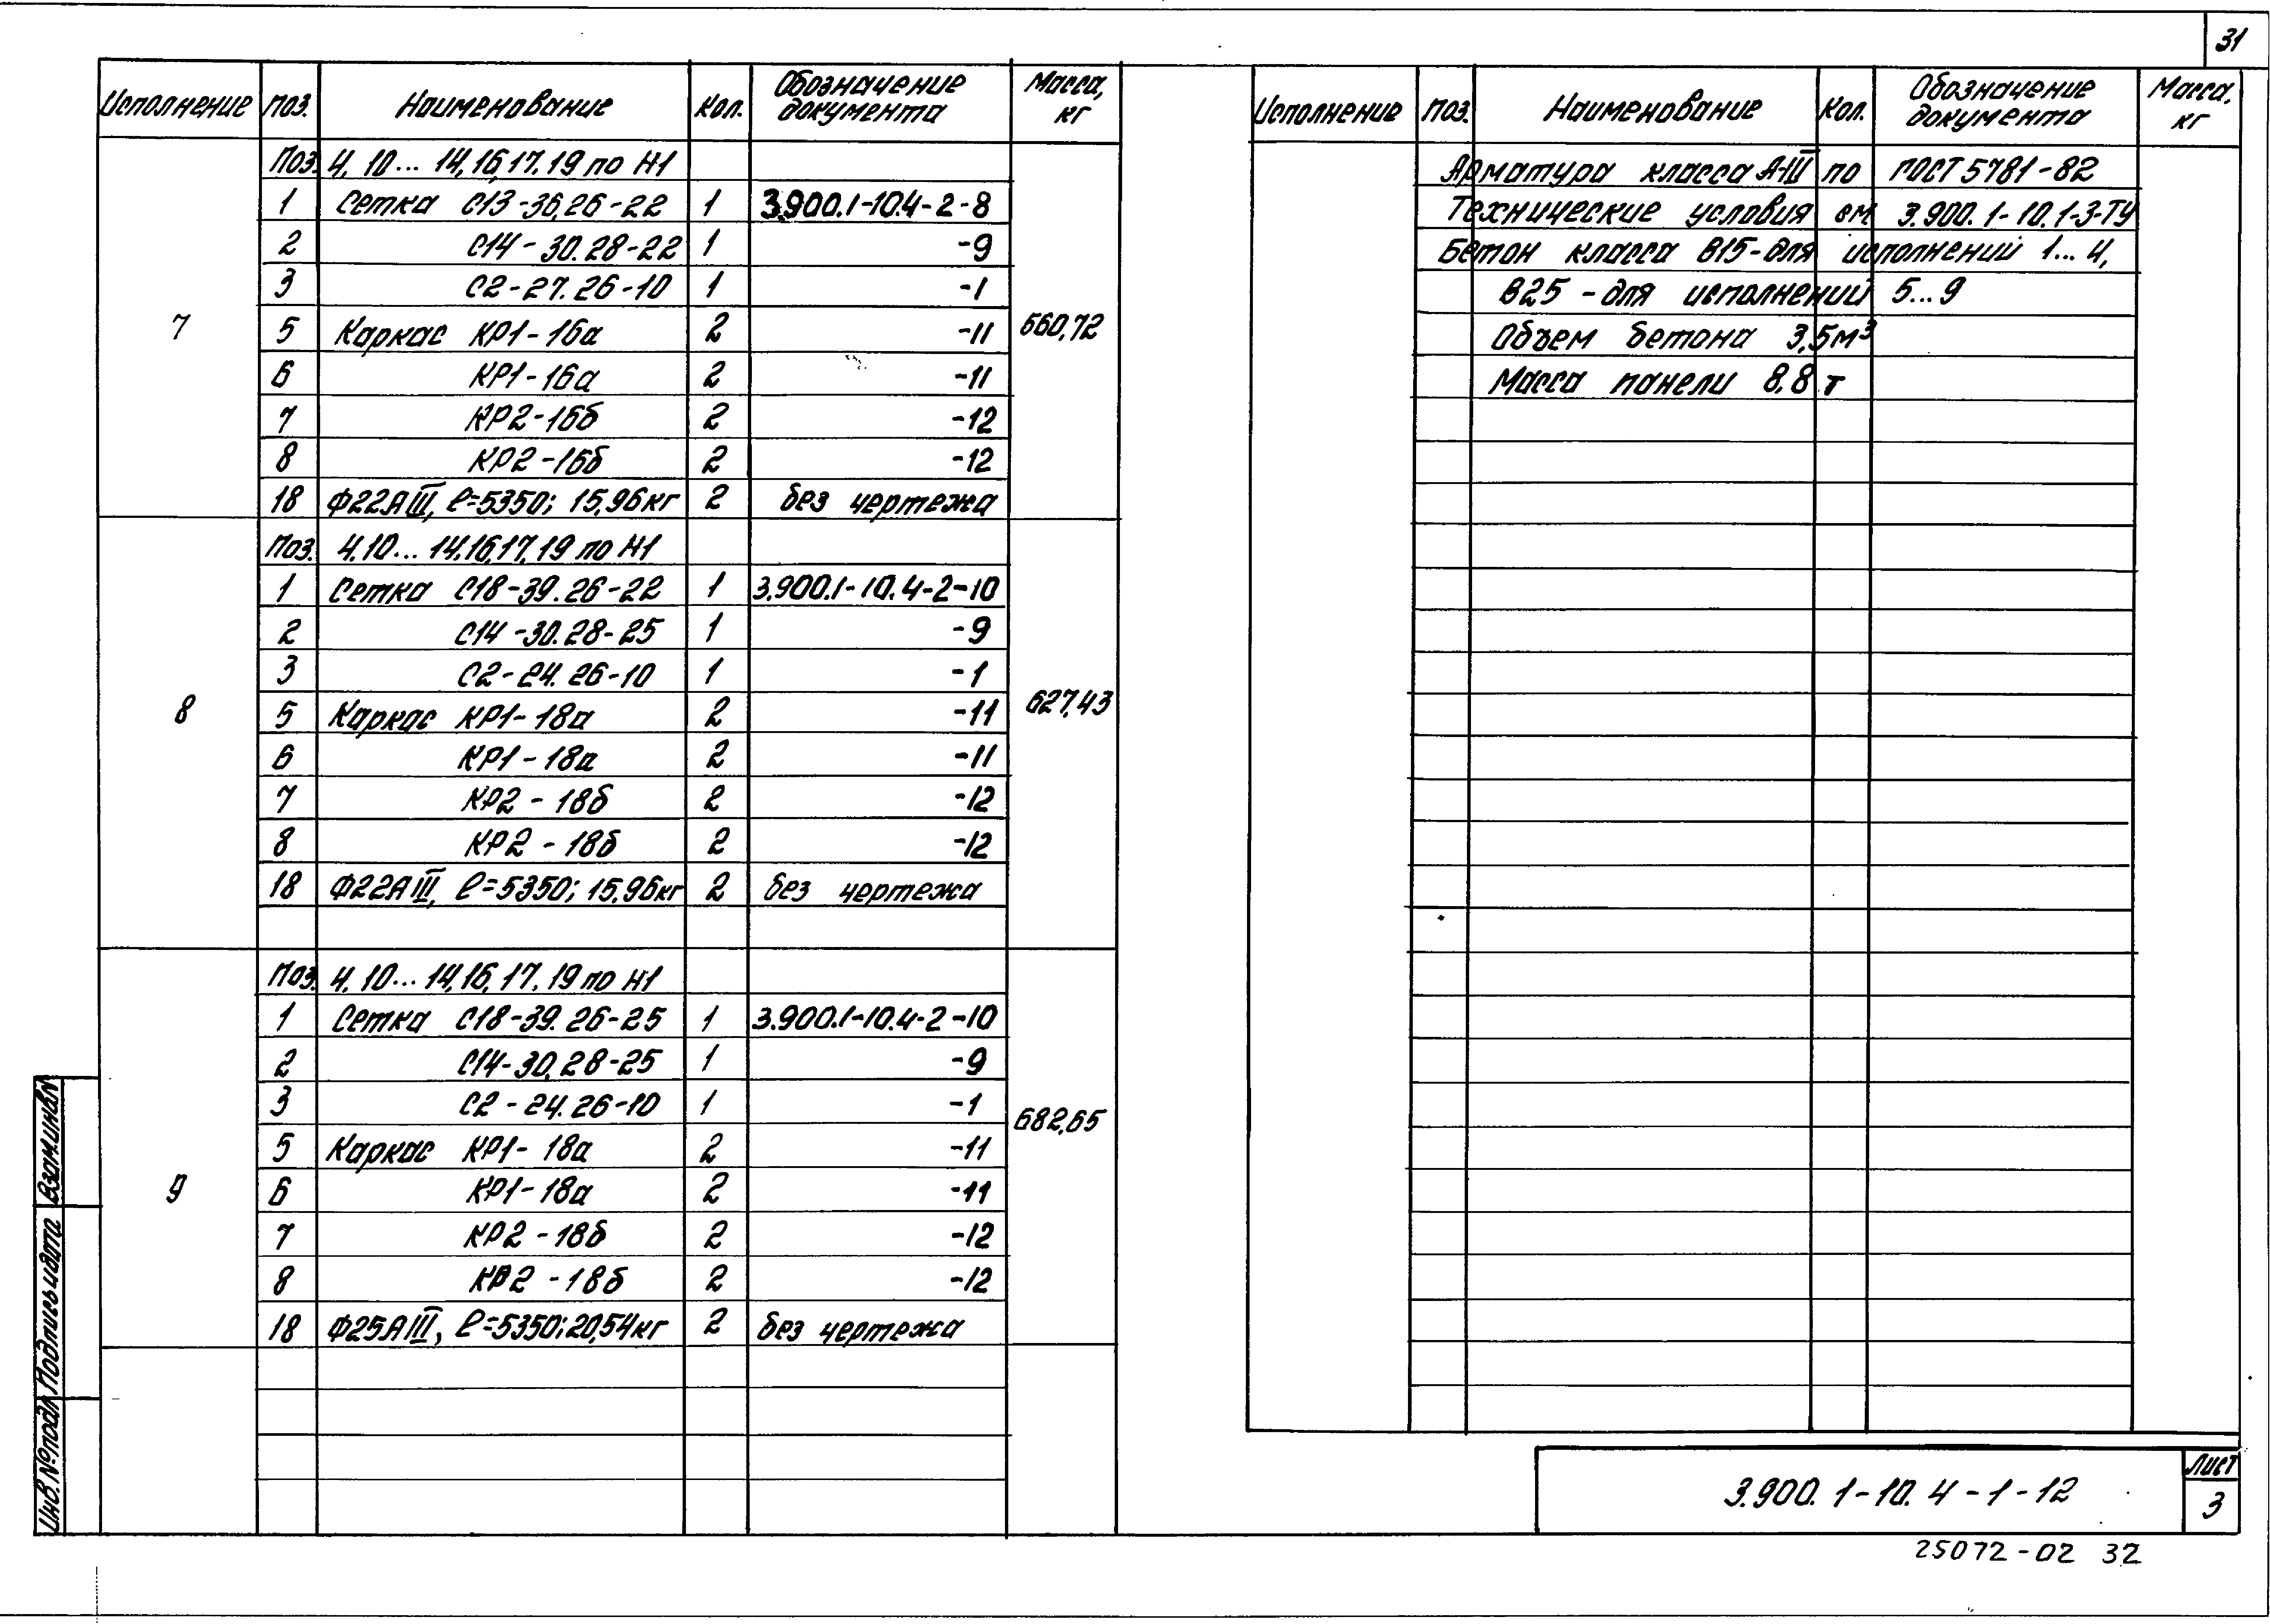 31
Исполнение поз. Наименование Кол. Обозначение документа Масса, кг
7
Поз. 4, 10... 14, 16, 17, 19 по Н1
1 Сетка С13-36.26-22 1 3.900.1-10.4-2-8
2 С14-30.28-22 1 -9
3 С2-27.26-10 1 -1
5 Каркас КР1-16а 2 -11 560,72
6 КР1-16а 2 -11
7 КР2-16б 2 -12
8 КР2-16б 2 -12
18 Ф22АIII, ℓ=5350; 15,96кг 2 без чертежа
8
Поз. 4, 10... 14, 16, 17, 19 по Н1
1 Сетка С18-39.26-22 1 3.900.1-10.4-2-10
2 С14-30.28-25 1 -9
3 С2-24.26-10 1 -1
5 Каркас КР1-18а 2 -11 627,43
6 КР1-18а 2 -11
7 КР2-18б 2 -12
8 КР2-18б 2 -12
18 Ф22АIII, ℓ=5350; 15,96кг 2 без чертежа
9
Поз. 4, 10... 14, 16, 17, 19 по Н1
1 Сетка С18-39.26-25 1 3.900.1-10.4-2-10
2 С14-30.28-25 1 -9
3 С2-24.26-10 1 -1 682,65
5 Каркас КР1-18а 2 -11
6 КР1-18а 2 -11
7 КР2-18б 2 -12
8 КР2-18б 2 -12
18 Ф25АIII, ℓ=5350; 20,54кг 2 без чертежа
Исполнение поз. Наименование Кол. Обозначение документа Масса, кг
Арматура класса А-III по ГОСТ 5781-82
Технические условия см 3.900.1-10.1-3-ТУ
Бетон класса В15-для исполнений 1... 4,
В25-для исполнений 5...9
Объем бетона 3,5м³
Масса панели 8,8 т
Инв.№подл Подпись и дата Взам.инв№
3.900.1-10.4-1-12
Лист
3
25072-02 32